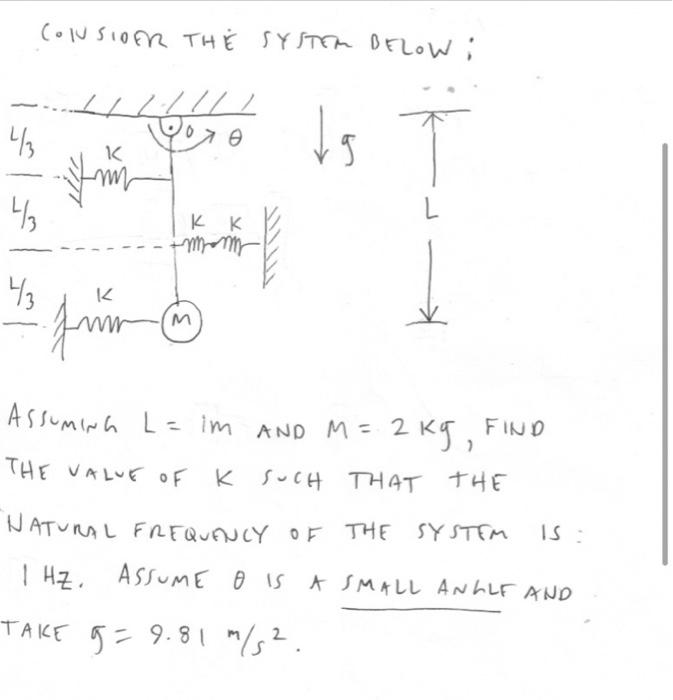 CONSIDER THE SYSTEM BELOW:
L/3
L/3
L/3
K
O
θ
g
K K
L
K
M
ASSUMING L = 1m AND M = 2 Kg, FIND
THE VALUE OF K SUCH THAT THE
NATURAL FREQUENCY OF THE SYSTEM IS:
1 HZ. ASSUME θ IS A SMALL ANGLE AND
TAKE g = 9.81 m/s².